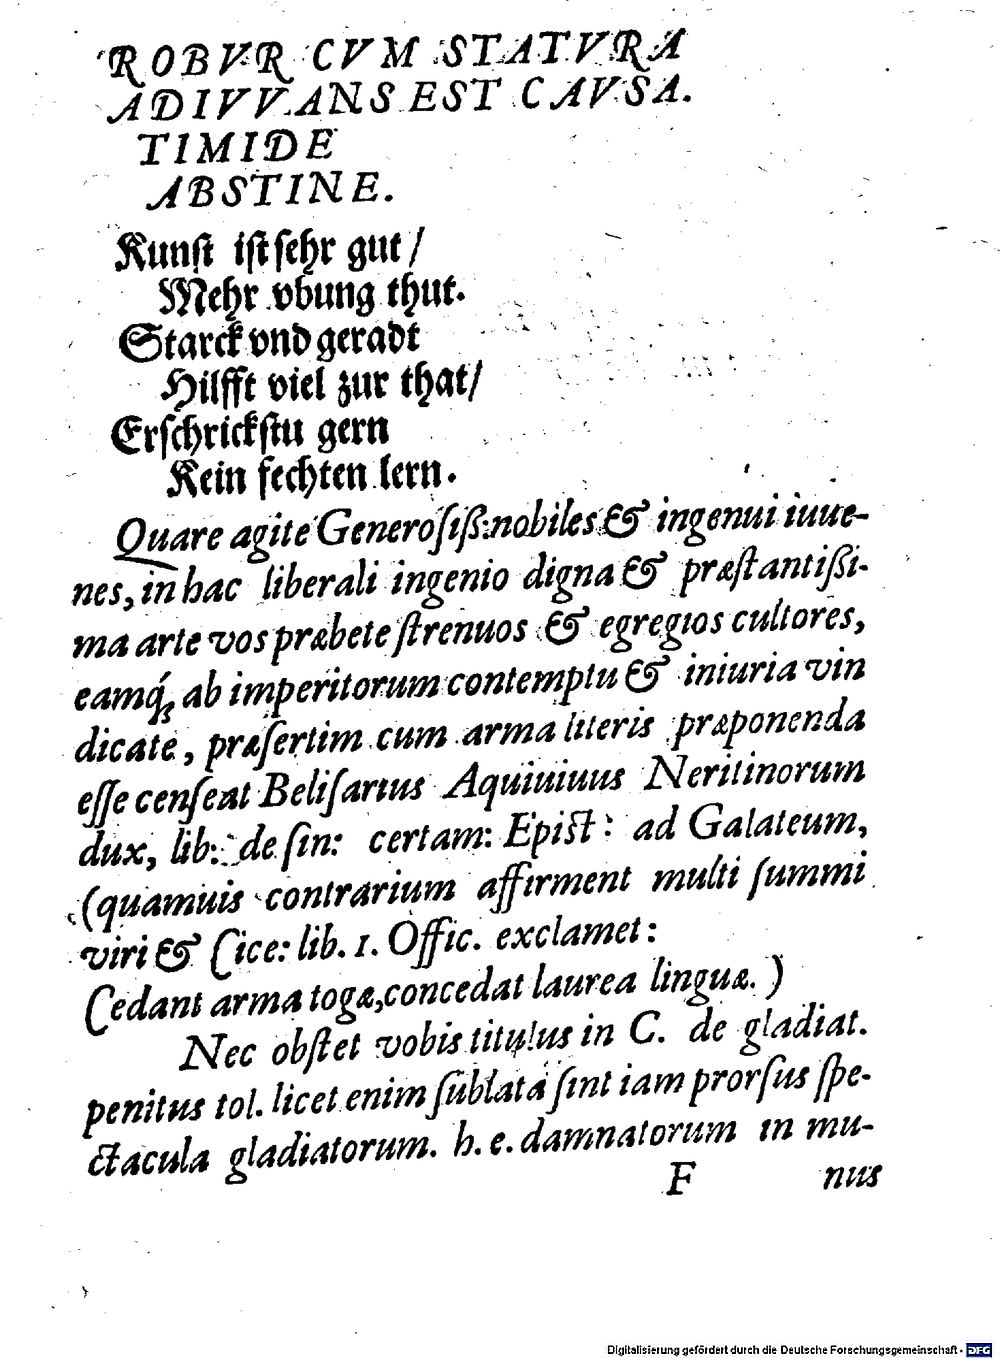 ROBVR CVM STATVRA
ADIVVANS EST CAVSA.
TIMIDE
ABSTINE.
Kunſt iſt ſehr gut /
Mehr vbung thut.
Starck vnd geradt
Hilfft viel zur that /
Erſchrickſtu gern
Kein fechten lern.
Quare agite Generoſiſß: nobiles & ingenui iuue-
nes, in hac liberali ingenio digna & præſtantiſſi-
ma arte vos præbete ſtrenuos & egregios cultores,
eamq́ꝫ ab imperitorum contemptu & iniuria vin
dicate, præſertim cum arma literis præponenda
eſſe cenſeat Beliſarius Aquiuiuus Neritinorum
dux, lib: de ſin: certam: Epist: ad Galateum,
(quamuis contrarium affirment multi ſummi
viri & Cice: lib. 1. Offic. exclamet:
Cedant arma togæ, concedat laurea linguæ.)
Nec obſtet vobis titulus in C. de gladiat.
penitus tol. licet enim ſublata ſint iam prorſus ſpe-
ctacula gladiatorum. h. e. damnatorum in mu-
F nus
Digitalisierung gefördert durch die Deutsche Forschungsgemeinschaft - DFG